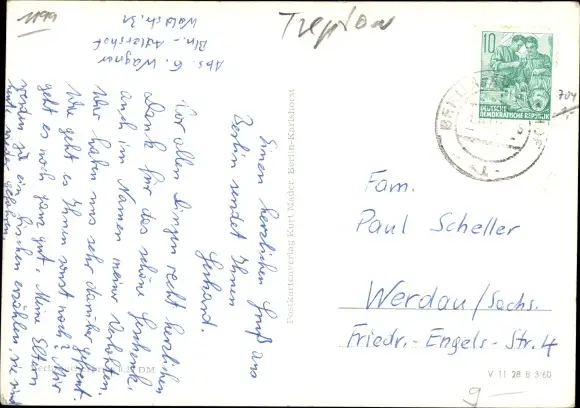 1199
Abs. G. Wagner
Bln.-Adlershof
Waldstr. 31
Treptow
Einen herzlichen Gruß aus
Berlin sendet Ihnen
Gerhard.
Vor allen Dingen recht herzlichen
Dank für das schöne Geschenk,
auch im Namen meiner Verlobten.
Wir haben uns sehr darüber gefreut.
Wie geht es Ihnen sonst noch? Mir
geht es noch ganz gut. Meine Eltern
werden ja ein bischen erzählen, sie sind
heute wieder gefahren.
Postkartenverlag Kurt Mader, Berlin-Karlshorst
10
DEUTSCHE
DEMOKRATISCHE REPUBLIK
704
Fam.
Paul Scheller
Werdau/Sachs.
Friedr.-Engels-Str. 4
V 11 28 B 3/60
9 —